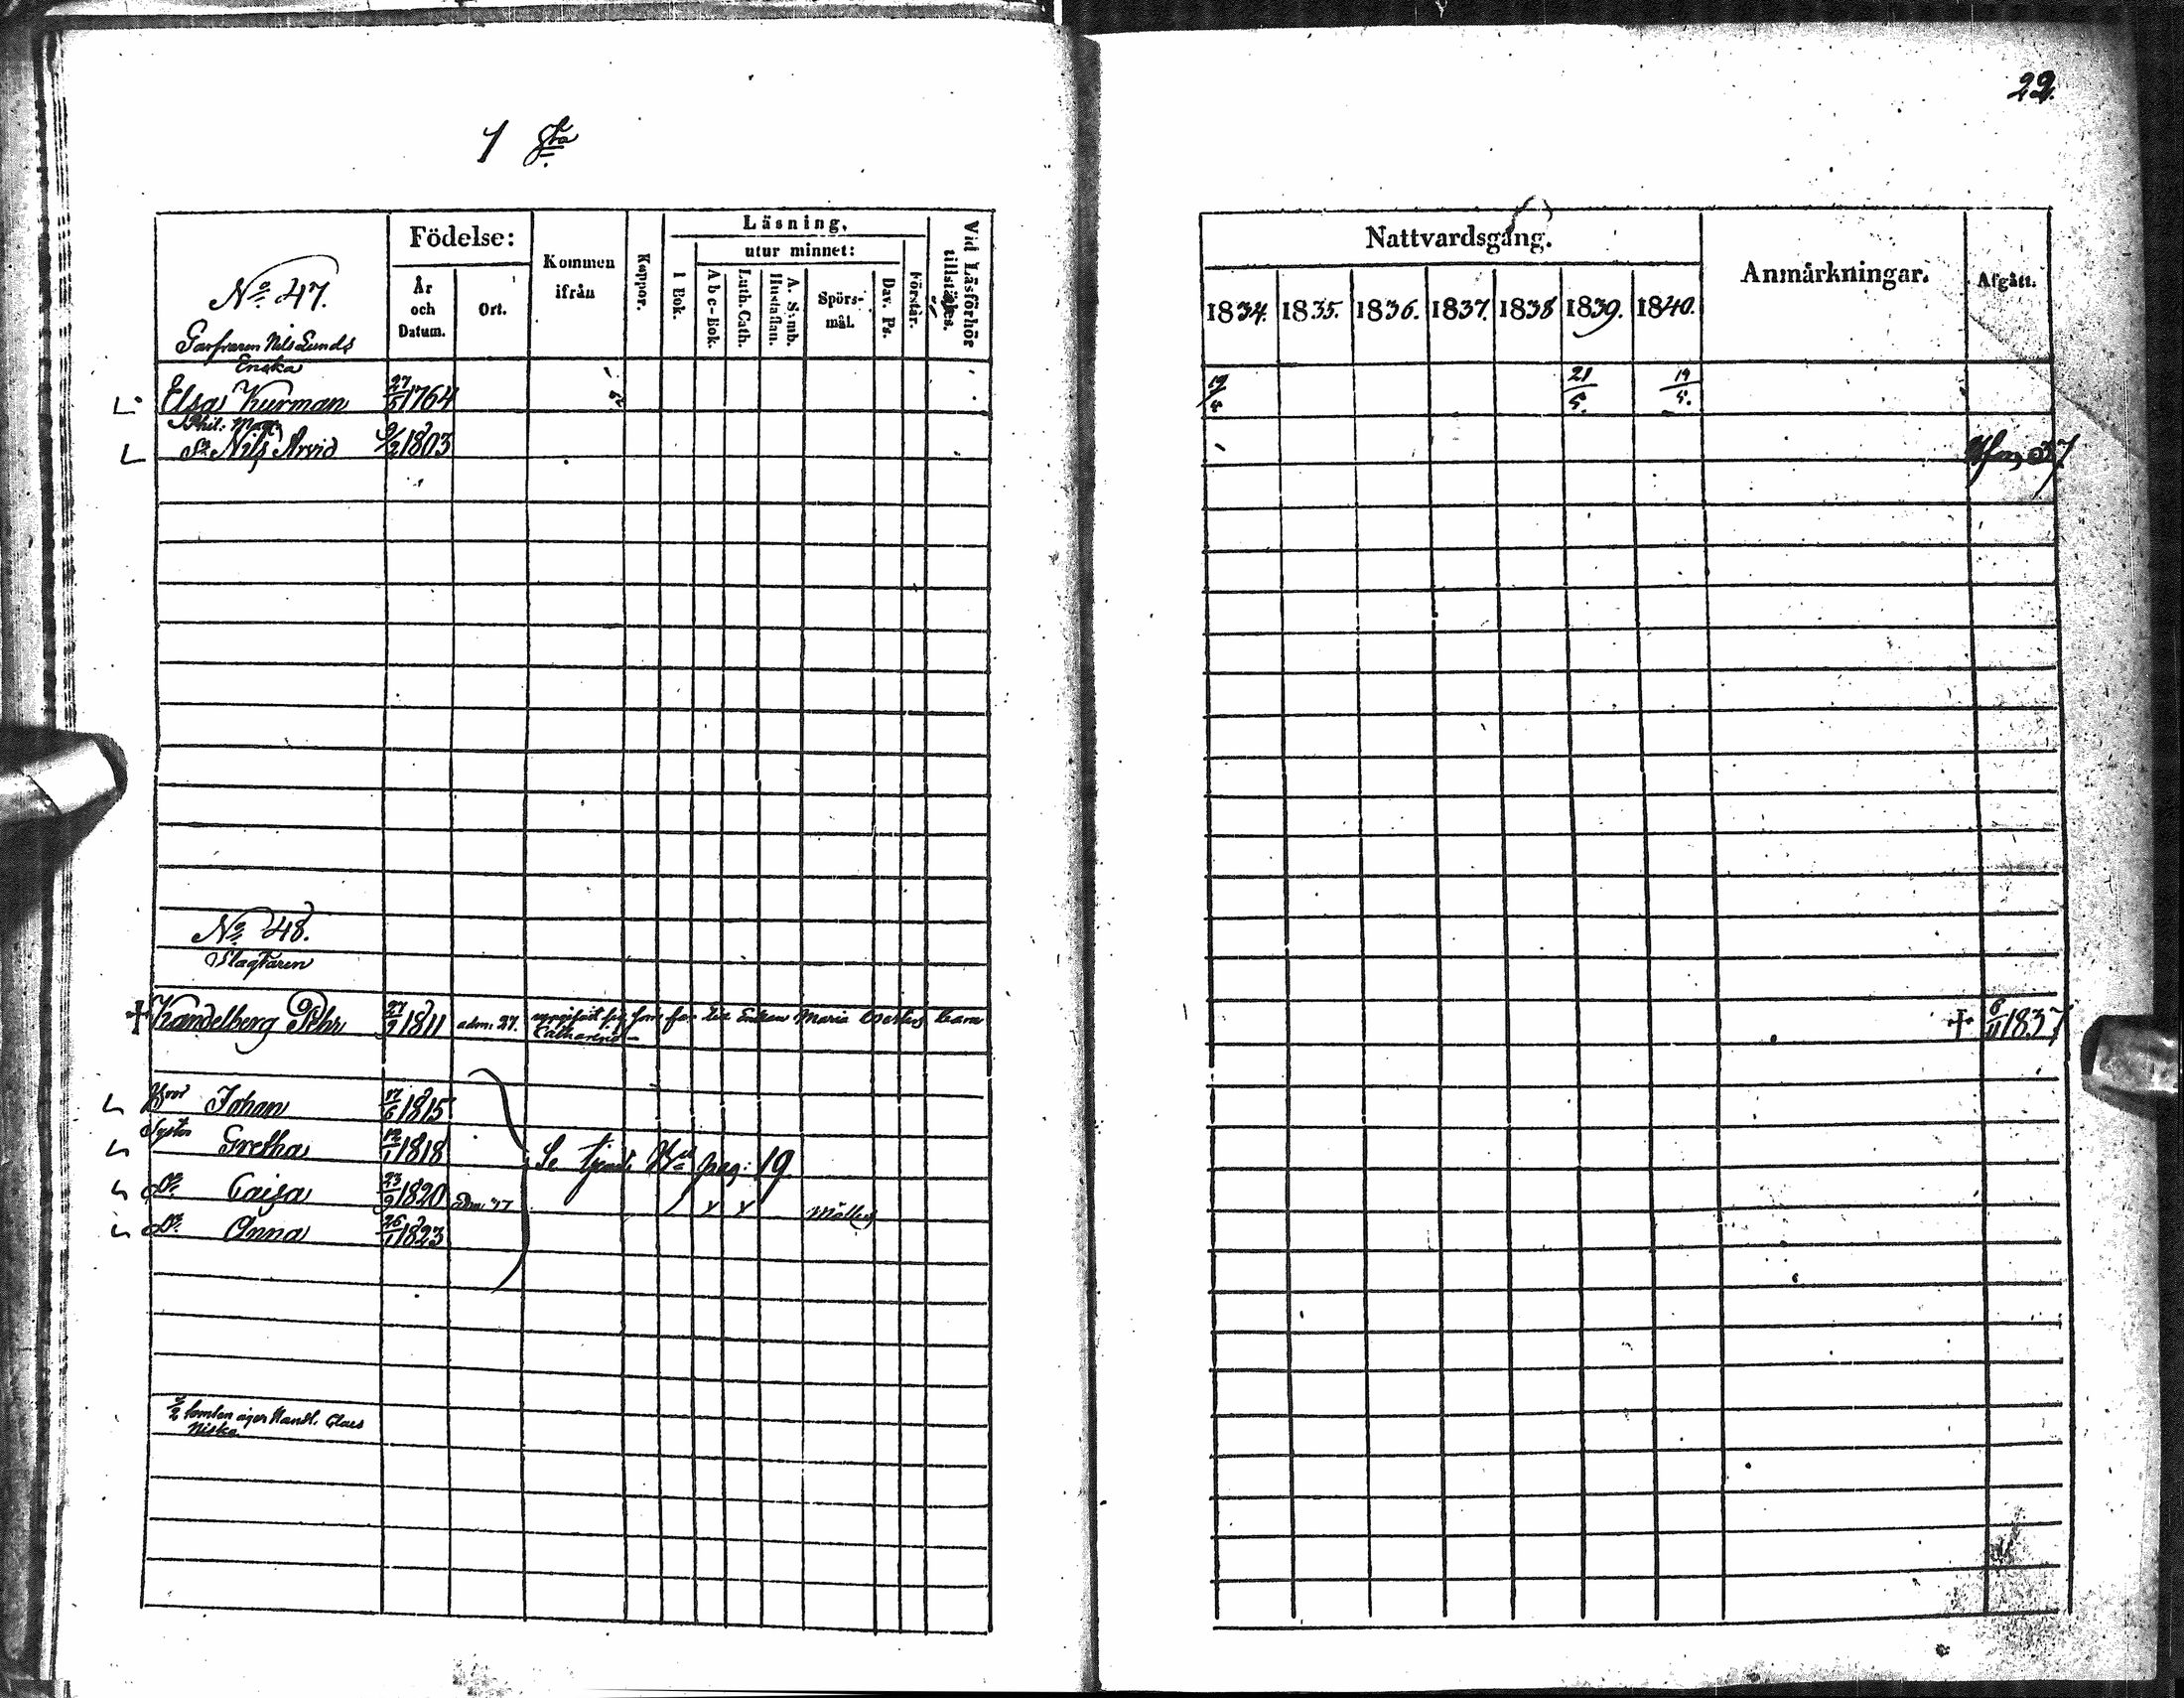 22.
1 sta
Födelse:
År och Datum.
Ort.
Kommen ifrån
Koppor.
Läsning.
I Bok.
utur minnet:
A b c-Bok.
Luth. Cath.
A. Symb. Hustaflan.
Spörs-mål.
Dav. Ps.
Förstår.
Vid Läsförhör tillstädes.
Nattvardsgång.
1834. 1835. 1836. 1837. 1838 1839. 1840.
Anmärkningar.
Afgått.
No 47.
Garfvaren Nils Lunds
Enska
Elsa Kurman 27/5 1764 19/4 21/5. 19/5.
Phil. Mag.
Sn Nils Arvid 9/2 1803 37
No 48.
Slagtaren
+ Kandelberg Pehr 27/2 1811 adm. 27. som far till Enkan Maria barn + 6/11 1837
Catharina
Johan 17/6 1815
Syster Gretha 12/1 1818 Se pag: 19
Do Caisa 23/9 1820
Do Anna 26/1 1823
1/2 tomten äger Handl. Claes
Niska